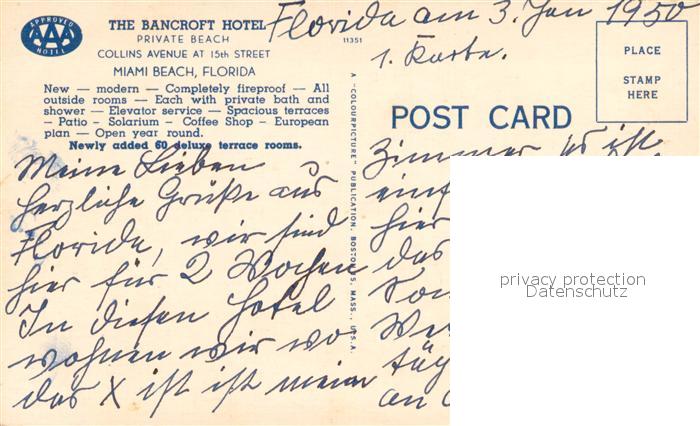 APPROVED
AAA
HOTEL
THE BANCROFT HOTEL
PRIVATE BEACH
COLLINS AVENUE AT 15TH STREET
MIAMI BEACH, FLORIDA
New — modern — Completely fireproof — All
outside rooms — Each with private bath and
shower — Elevator service — Spacious terraces
— Patio — Solarium — Coffee Shop — European
plan — Open year round.
Newly added 60 deluxe terrace rooms.
11351
Florida am 3. Jan 1950
1. Karte.
PLACE
STAMP
HERE
POST CARD
A "COLOURPICTURE" PUBLICATION, BOSTON 15, MASS., U.S.A.
Meine Lieben
herzliche Grüße aus
Florida, wir sind
hier für 2 Wochen
In diesen Hotel
wohnen wir wo
das X ist ist mein
Zimmer. Es ist
einf
hier
das
Son
We
täg
an
privacy protection
Datenschutz